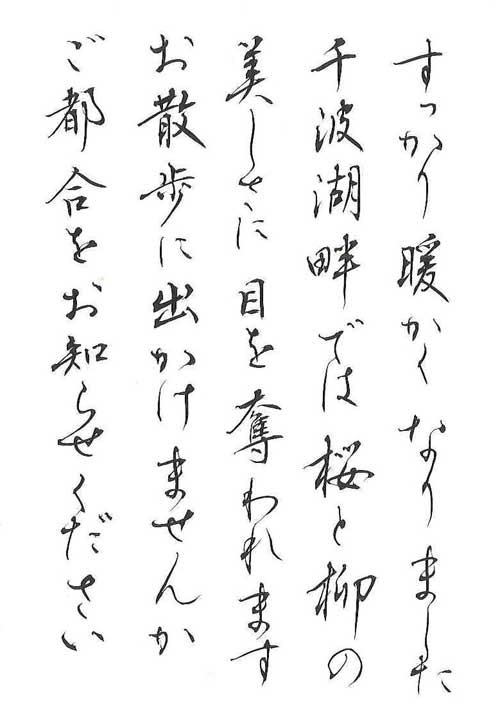 すっかり暖かくなりました
千波湖畔では桜と柳の
美しさに目を奪われます
お散歩に出かけませんか
ご都合をお知らせください